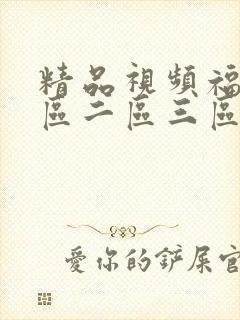 精品視頻福
區二區三區
愛你的鏟屎官